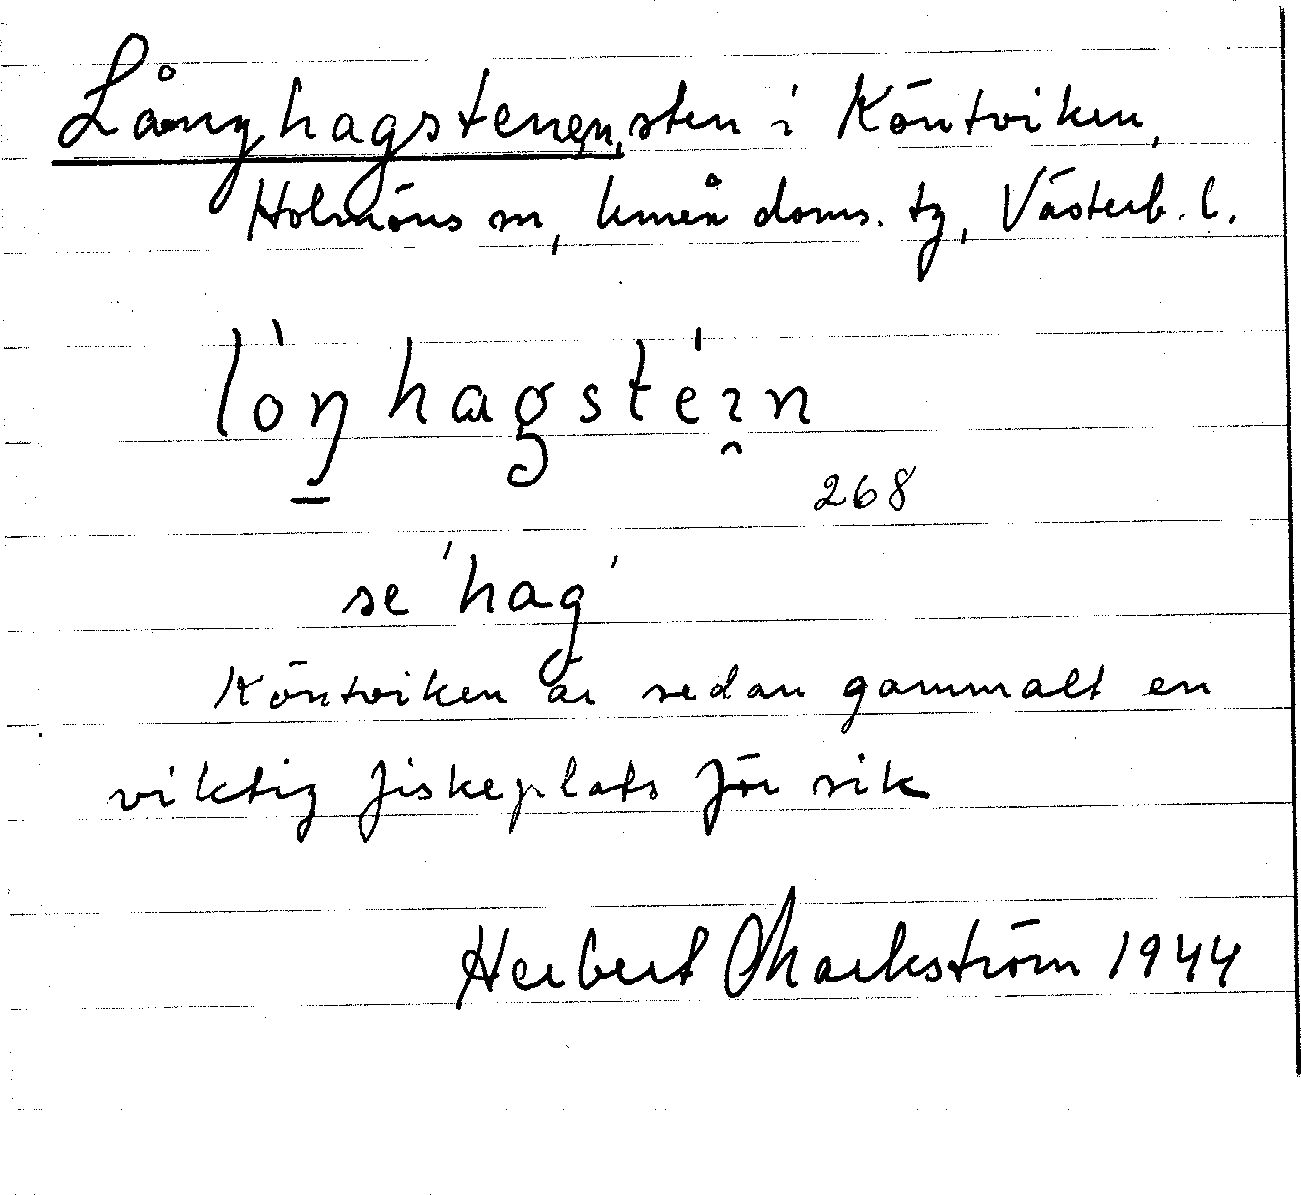 Långhagstenen, sten i Köntviken,
Holmöns sn, Umeå doms. tg, Västerb. l.
lòŋhagstén
268
se 'hag'
Köntviken är sedan gammalt en
viktig fiskeplats för sik
Herbert Markström 1944